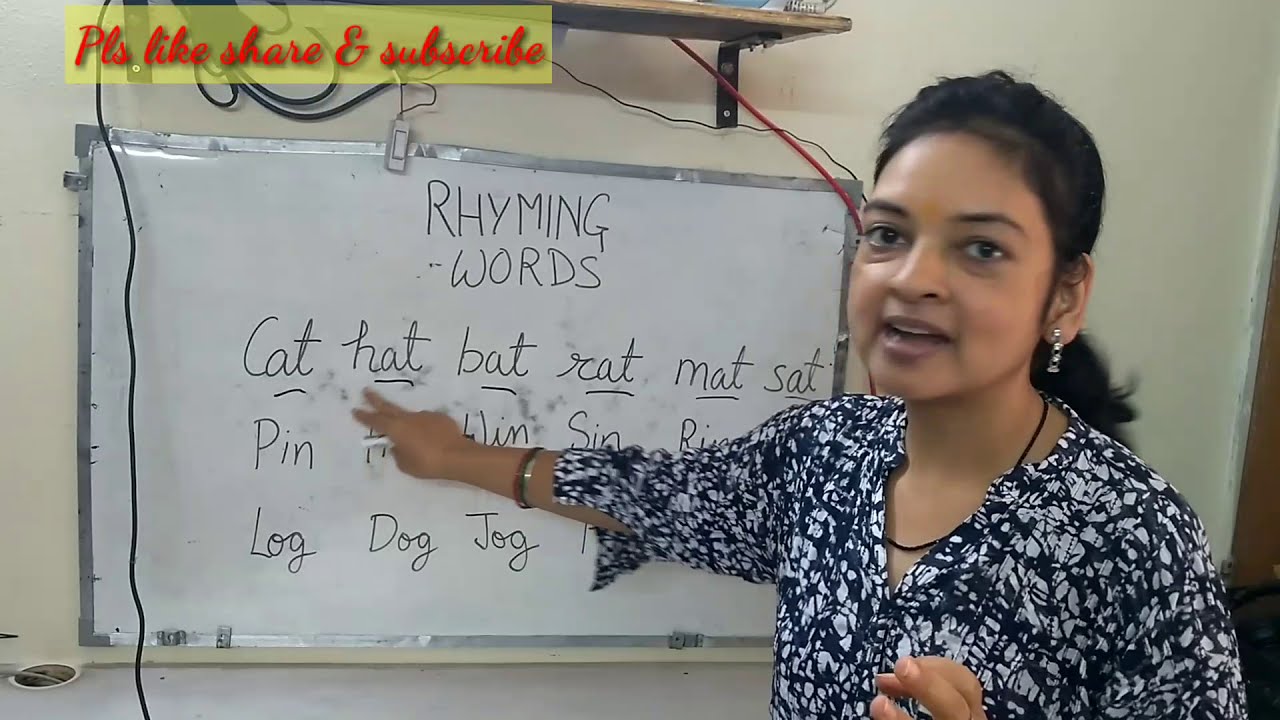 Pls like share & subscribe
RHYMING
WORDS
Cat hat bat rat mat sat
Pin Win Sin
Log Dog Jog